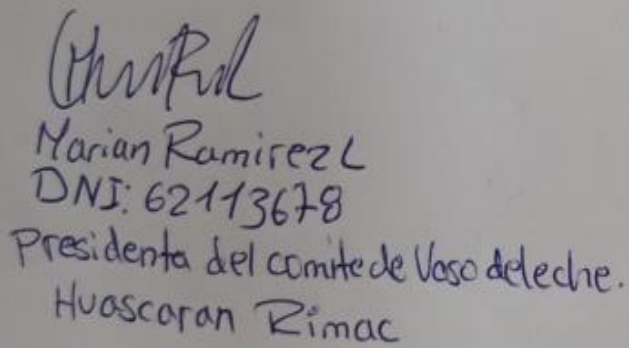 Marian Ramirez L
DNI: 62113678
Presidenta del comite de Vaso de leche.
Huascaran Rimac